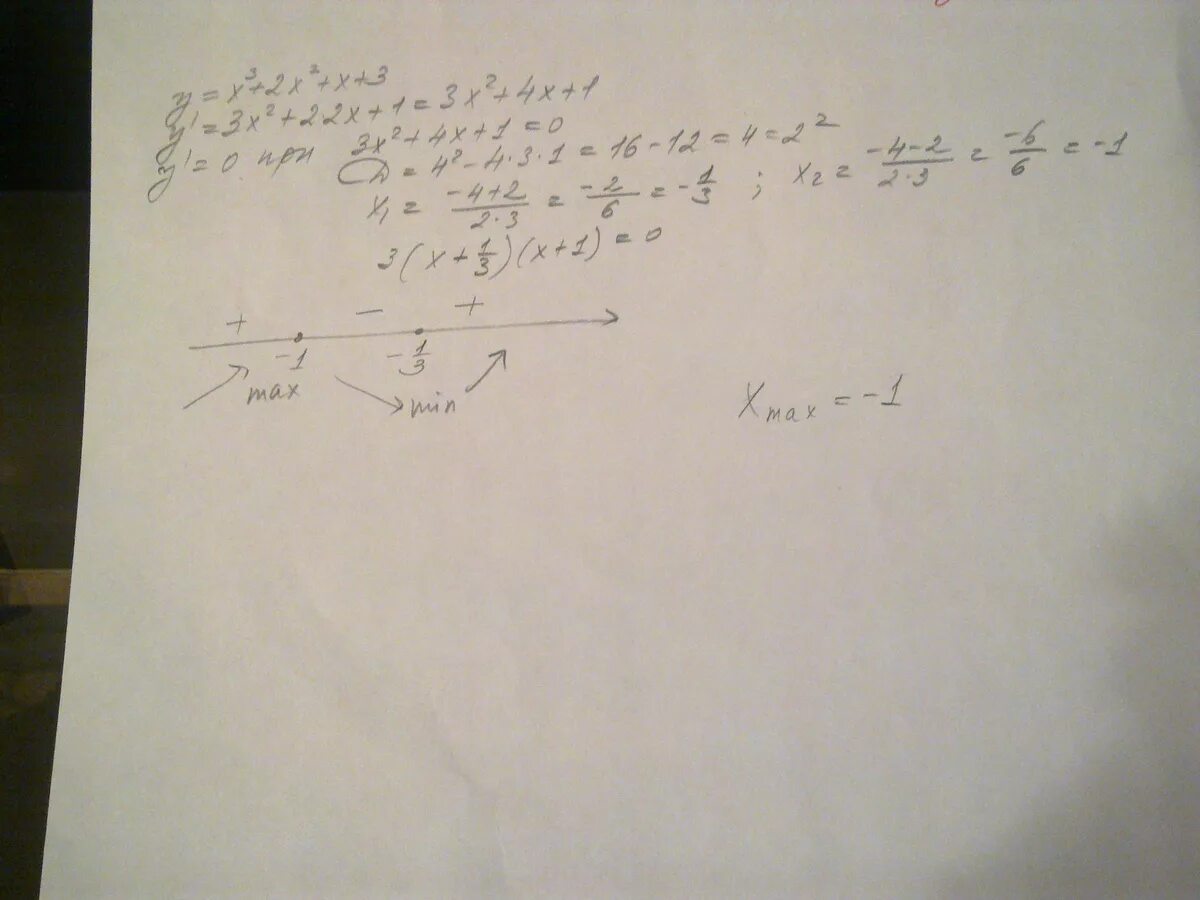 y = x³+2x²+x+3
y' = 3x²+2·2x+1 = 3x²+4x+1
y' = 0 при 3x²+4x+1=0
D = 4²-4·3·1 = 16-12 = 4 = 2²
x₁ = (-4+2)/(2·3) = -2/6 = -1/3 ; x₂ = (-4-2)/(2·3) = -6/6 = -1
3(x+1/3)(x+1) = 0
+ - +
-1 -1/3
max min
Xmax = -1